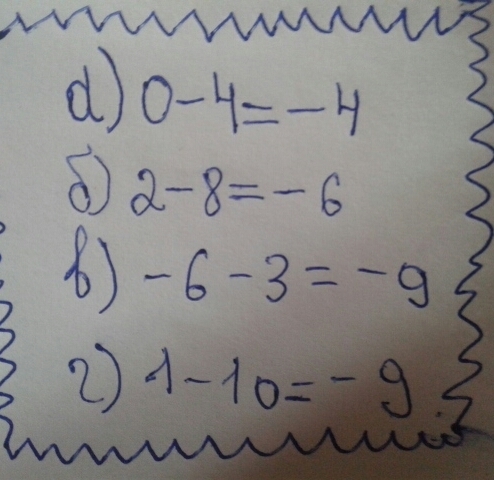 а) 0-4=-4
б) 2-8=-6
в) -6-3=-9
г) 1-10=-9